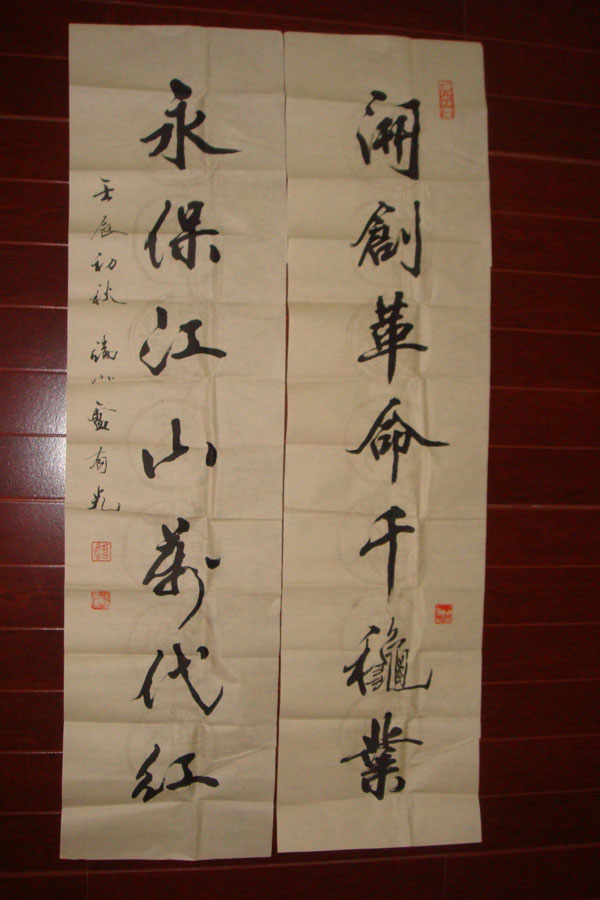 開創革命千龝業
永保江山萬代紅
壬辰初秋 盧有光